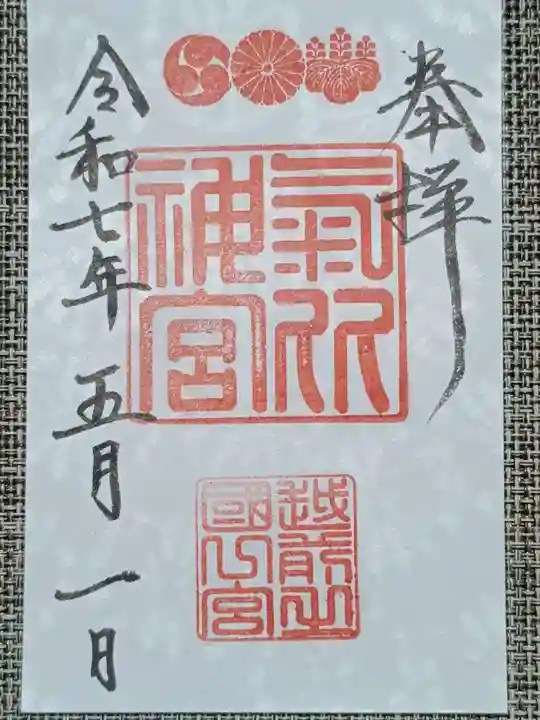 奉拝
氣比
神宮
越前之
國一宮
令和七年五月一日